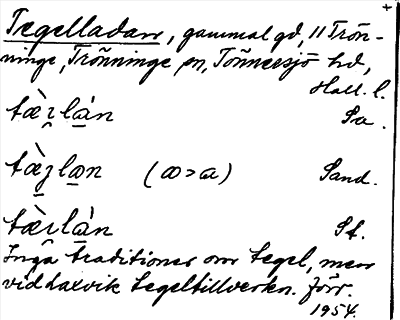 Tegelladan, gammal gd, 11 Trön-
ninge, Trönninge sn, Tönnersjö hd,
Hall. l.
tæ̀ɀlàn Sa.
tæ̀ɀlan (ꝏ>a) Sand.
tæ̀rlàn St.
Inga traditioner om tegel, men
vid Laxvik tegeltillverkn. förr.
1954.